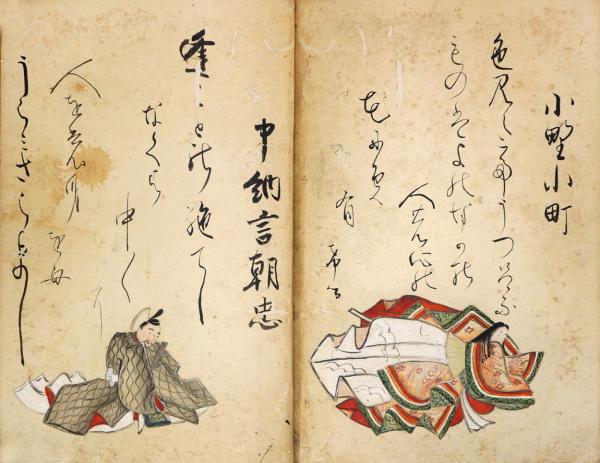 小野小町
色見えてうつろふ
ものは世の中の
人の心の
花にそ
有
ける
中納言朝忠
逢ことの絶てし
なくは
中〳〵
に
人をも身
をも
うらみさらまし